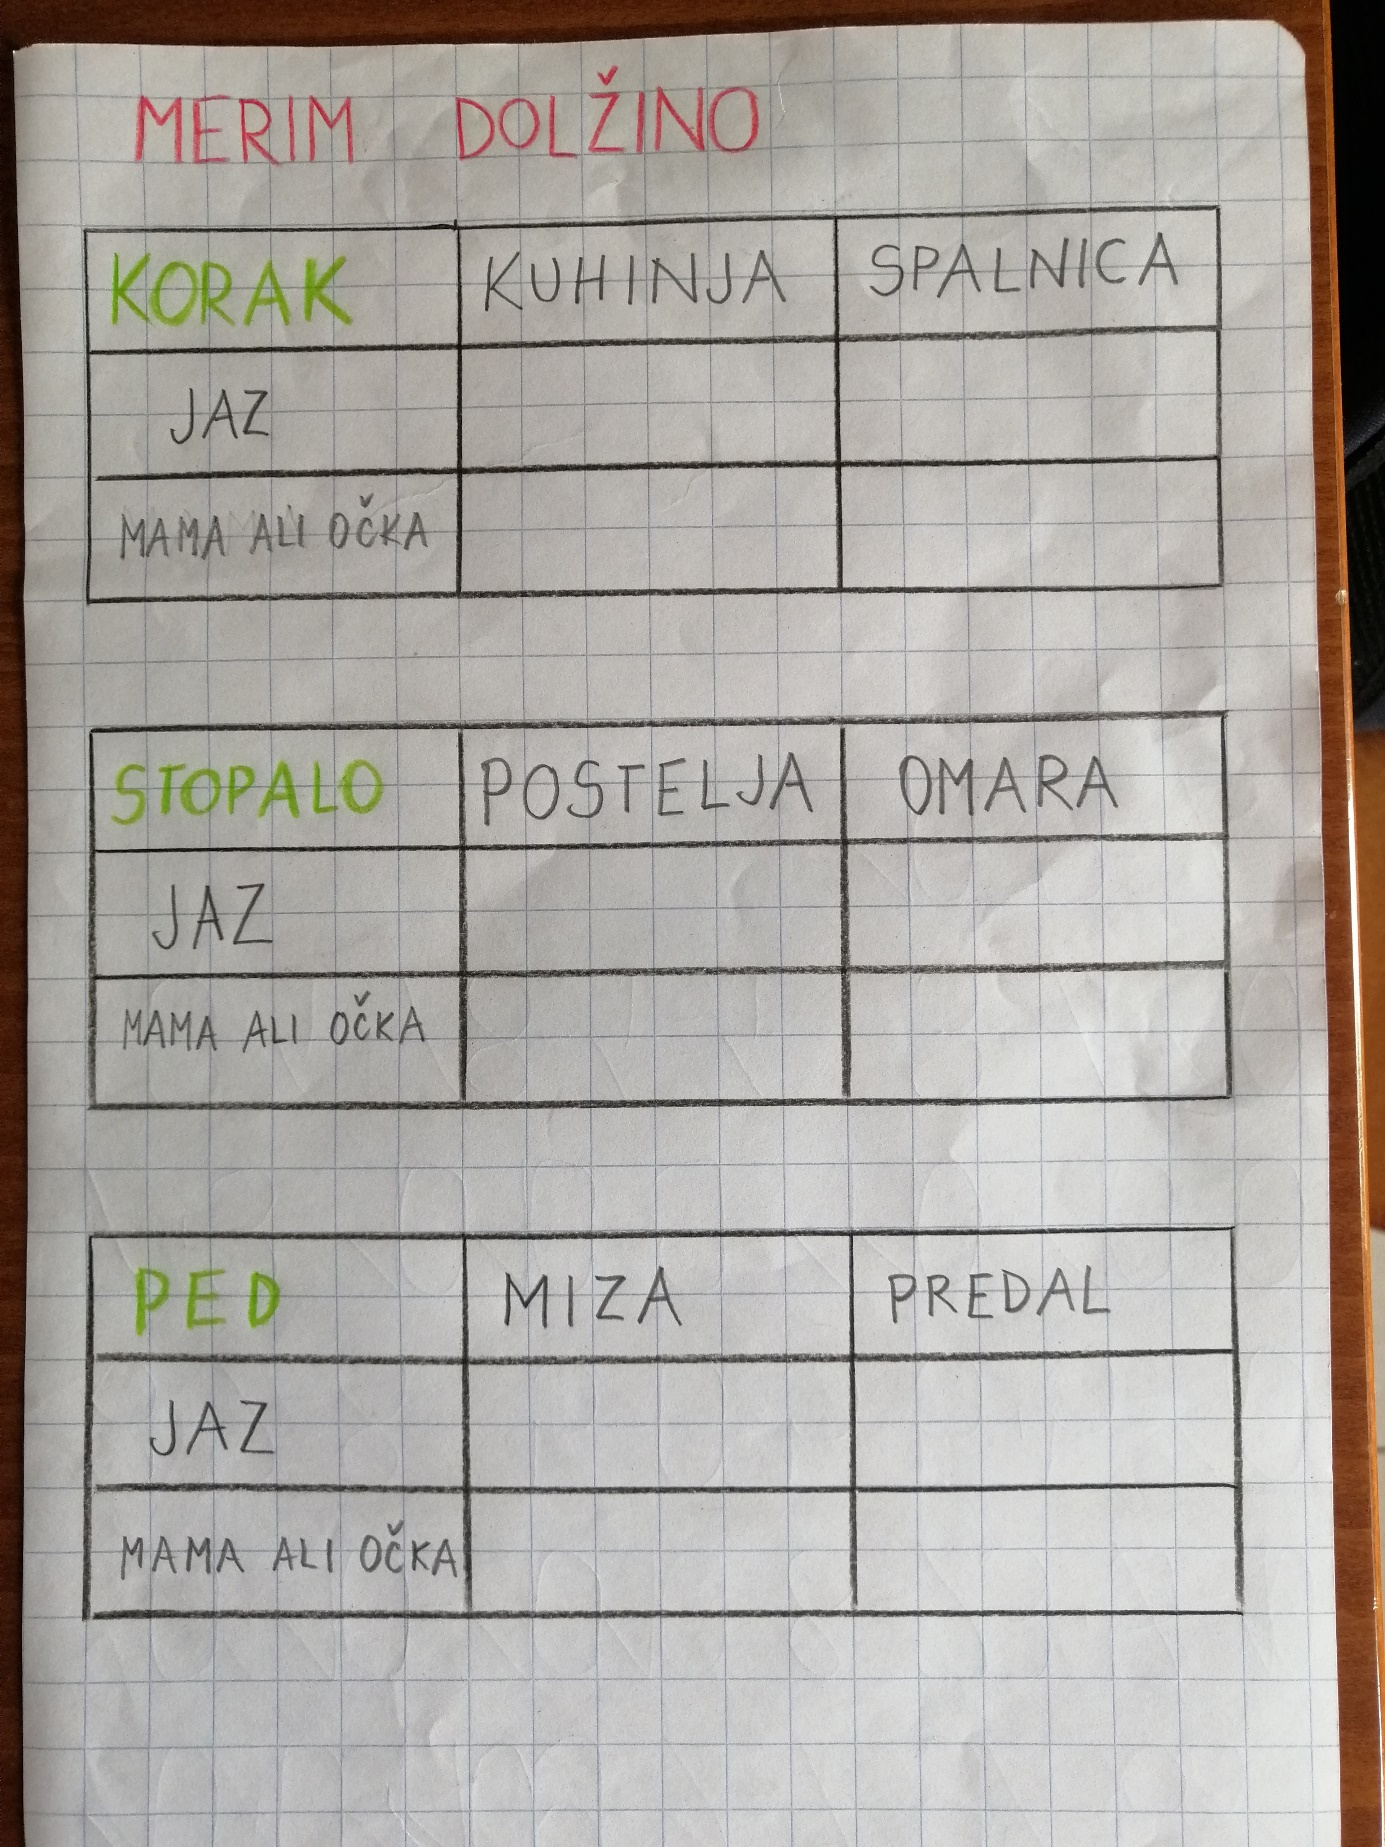 MERIM DOLŽINO
KORAK KUHINJA SPALNICA
JAZ
MAMA ALI OČKA
STOPALO POSTELJA OMARA
JAZ
MAMA ALI OČKA
PED MIZA PREDAL
JAZ
MAMA ALI OČKA